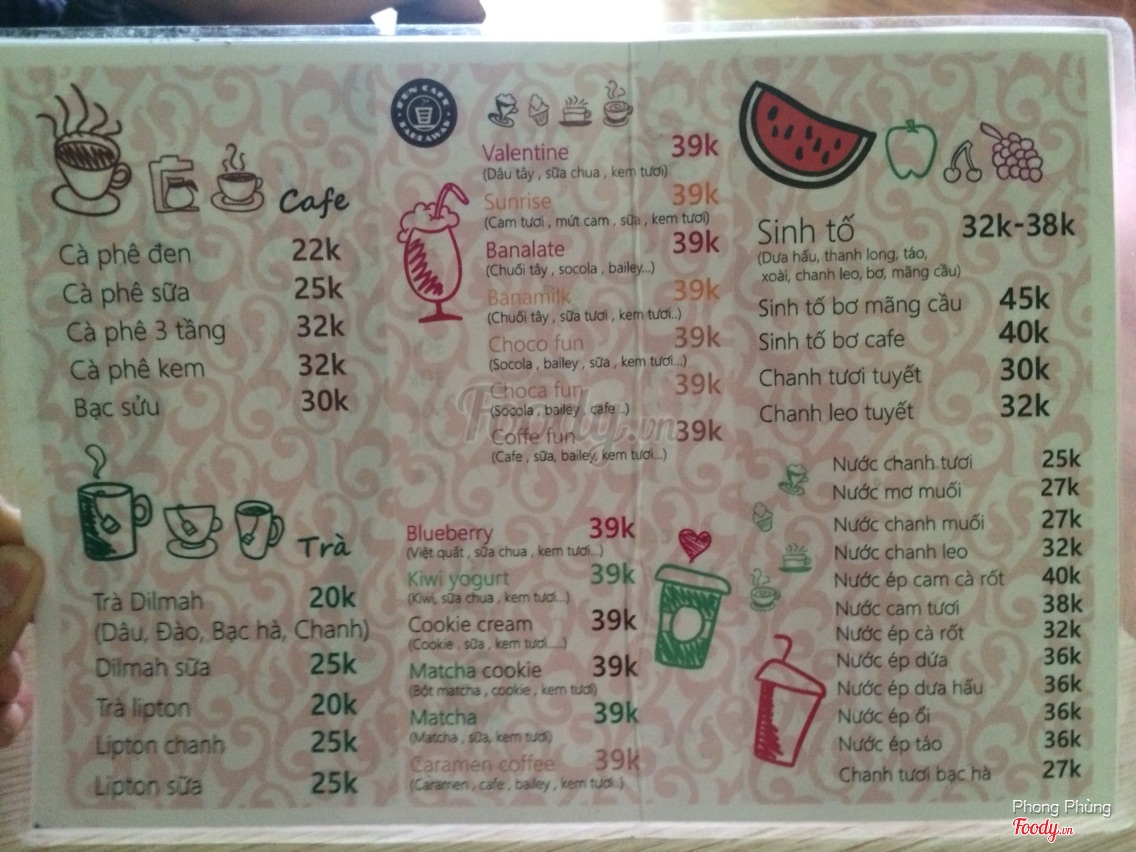 Cafe
Cà phê đen 22k
Cà phê sữa 25k
Cà phê 3 tầng 32k
Cà phê kem 32k
Bạc sửu 30k
Trà
Trà Dilmah 20k
(Dâu, Đào, Bạc hà, Chanh)
Dilmah sữa 25k
Trà lipton 20k
Lipton chanh 25k
Lipton sữa 25k
Valentine 39k
(Dâu tây , sữa chua , kem tươi)
Sunrise 39k
(Cam tươi , mứt cam , sữa , kem tươi)
Banalate 39k
(Chuối tây , socola , bailey...)
Banamilk 39k
(Chuối tây , sữa tươi , kem tươi..)
Choco fun 39k
(Socola , bailey , sữa , kem tươi...)
Choca fun 39k
(Socola , bailey , cafe ..)
Coffe fun 39k
(Cafe , sữa, bailey, kem tươi...)
Blueberry 39k
(Việt quất , sữa chua , kem tươi...)
Kiwi yogurt 39k
(Kiwi, sữa chua , kem tươi...)
Cookie cream 39k
(Cookie , sữa , kem tươi.....)
Matcha cookie 39k
(Bột matcha , cookie , kem tươi)
Matcha 39k
(Matcha , sữa, kem tươi)
Caramen coffee 39k
(Caramen , cafe , bailey , kem tươi..)
Sinh tố 32k-38k
(Dưa hấu, thanh long, táo,
xoài, chanh leo, bơ, mãng cầu)
Sinh tố bơ mãng cầu 45k
Sinh tố bơ cafe 40k
Chanh tươi tuyết 30k
Chanh leo tuyết 32k
Nước chanh tươi 25k
Nước mơ muối 27k
Nước chanh muối 27k
Nước chanh leo 32k
Nước ép cam cà rốt 40k
Nước cam tươi 38k
Nước ép cà rốt 32k
Nước ép dứa 36k
Nước ép dưa hấu 36k
Nước ép ổi 36k
Nước ép táo 36k
Chanh tươi bạc hà 27k
Foody.vn
Phong Phùng
Foody.vn